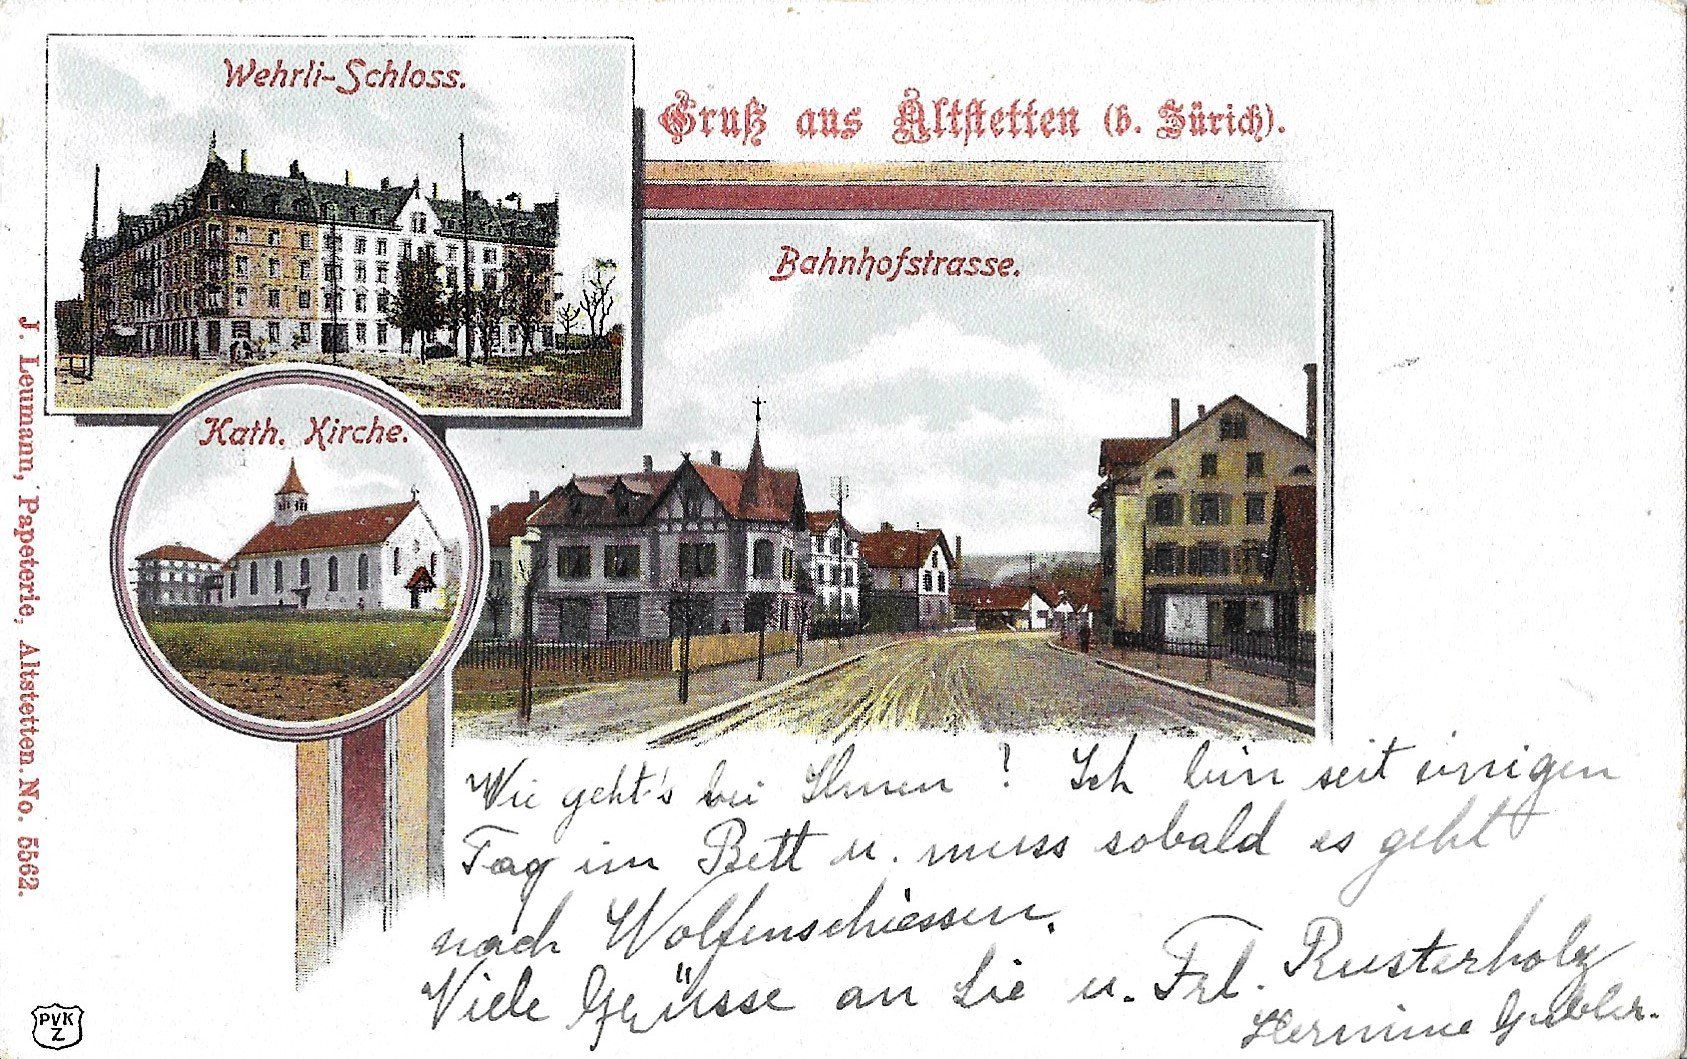 Wehrli-Schloss.
Gruß aus Altstetten (b. Zürich).
Bahnhofstrasse.
Kath. Kirche.
J. Leumann, Papeterie, Altstetten. No. 5562.
Wie geht's bei Ihnen ? Ich bin seit einigen
Tag im Bett u. muss sobald es geht
nach Wolfenschiessen.
Viele Grüsse an Sie u. Frl. Rusterholz
Hermine Gubler.
PVK
Z